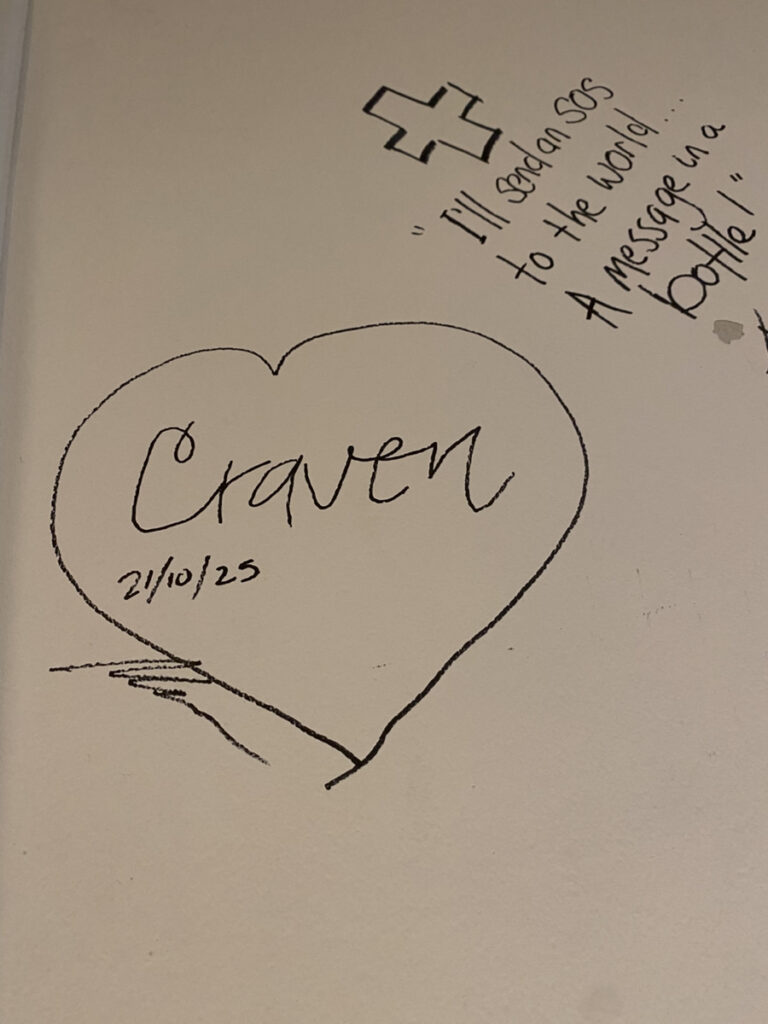 "I'll send an SOS
to the world...
A message in a
bottle!"
Craven
21/10/25